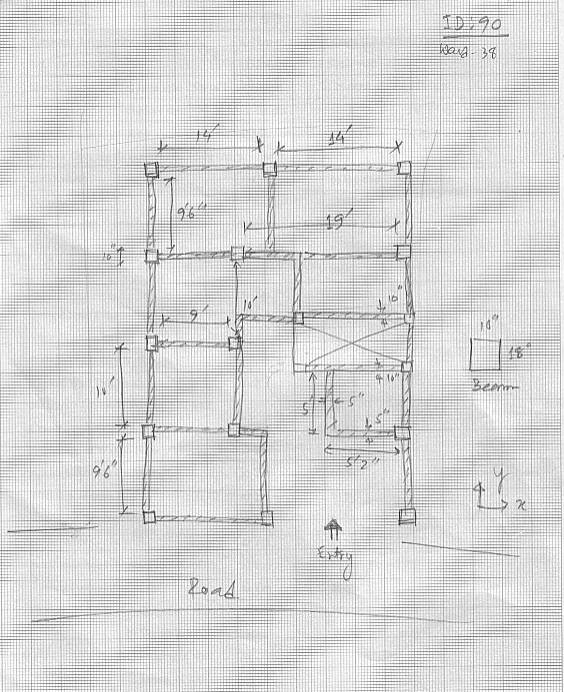 ID: 90
Ward - 38
14' 14'
9'6"
19'
10"
10'
10"
9'
10"
18"
Beam
10"
10'
5'
5"
5"
9'6"
5'2"
y
x
Entry
Road